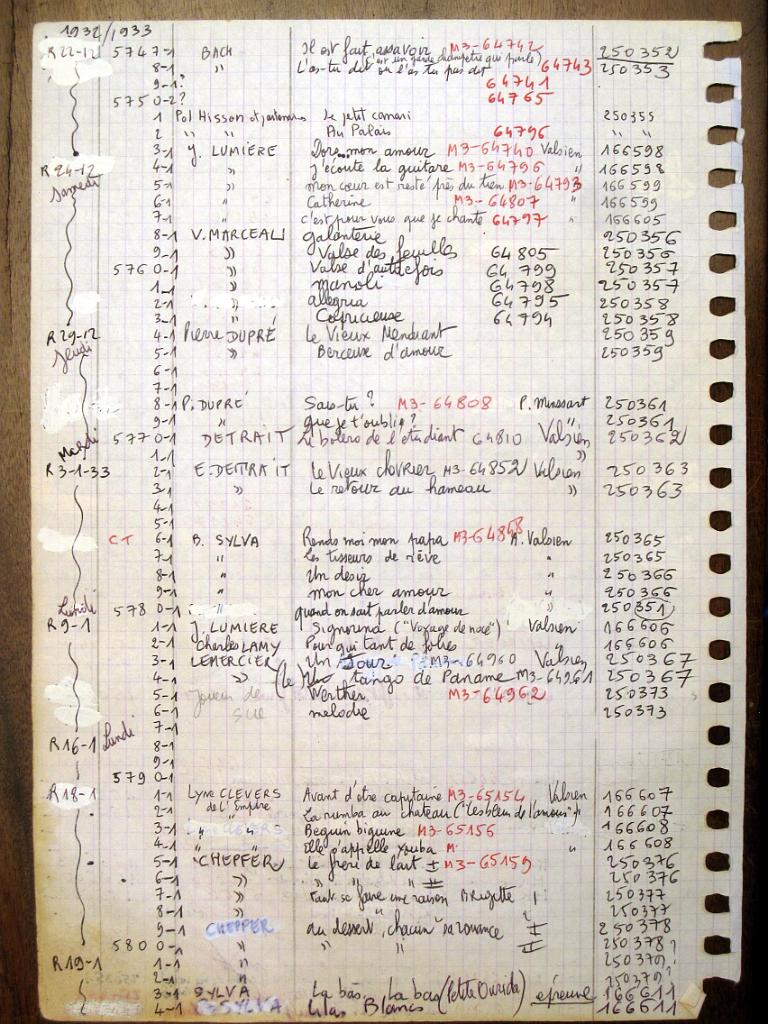 1932/1933
R 22-12 574 7-1 BACH Il est fait assavoir M3-64742 (c'est un garde champêtre qui parle) 250352
8-1 " L'as-tu dit ou l'as tu pas dit 64743 250353
9-1? 64741
575 0-2? 64765
1 Pol Hisson et partenaires Le petit canari 250355
2 " " Au Palais 64796 " "
3-1 J. LUMIÈRE Dors... mon amour M3-64740 Valsien 166598
R 24-12 4-1 " J'écoute la guitare M3-64796 " 166598
Samedi 5-1 " mon cœur est resté près du tien M3-64793 166599
6-1 " Catherine M3-64807 " 166599
7-1 " c'est pour vous que je chante 64797 " 166605
8-1 V. MARCEAU galanterie 250356
9-1 " Valse des feuilles 64805 250356
576 0-1 " Valse d'autrefois 64799 250357
1-1 " manoli 64798 250357
2-1 " allegria 64795 250358
3-1 " Capricieuse 64794 250358
R 29-12 4-1 Pierre DUPRÉ Le Vieux Mendiant 250359
Jeudi 5-1 " Berceux d'amour 250359
6-1
7-1
8-1 P. DUPRÉ Sais-tu ? M3-64808 P. Minssart 250361
9-1 " que je t'oublie ? 250361
Mardi 577 0-1 DETRAIT Le bolero de l'etudiant 64810 Valsien 250362
1-1 "
R 3-1-33 2-1 E. DETRAIT Le Vieux chevrier M3-64852 Valsien 250363
3-1 " Le retour au hameau " 250363
4-1
5-1
CT 6-1 B. SYLVA Rends moi mon papa M3-64858 A. Valsien 250365
7-1 " Les tisseurs de rêve 250365
8-1 " Un désir " 250366
9-1 " mon cher amour " 250366
Lundi 578 0-1 " quand on sait parler d'amour " 250(351)
R 9-1 1-1 J. LUMIERE Signorina ("Voyage de noce") Valsien 166606
2-1 Charles LAMY Pour qui tant de folies 166606
3-1 LEMERCIER Un Jour M3-64960 Valsien 250367
4-1 " (le tango de Paname M3-64961 250367
5-1 Joueur de Werther M3-64962 250373
6-1 scie melodie 250373
7-1
R 16-1 Lundi 8-1
9-1
579 0-1
R 18-1 1-1 Lyne CLEVERS Avant d'être capitaine M3-65154 Valsien 166607
2-1 de l'Empire La rumba au chateau ("Les bleus de l'amour") " 166607
3-1 " " Beguin biguine M3-65156 166608
4-1 " " Elle s'appelle Xpuba M " 166608
5-1 CHEPFER Le frère de lait I M3-65159 250376
6-1 " " " II 250376
7-1 " Faut se faire une raison Brigette I 250377
8-1 " 2 250377
9-1 CHEPFER au dessert, chacun sa romance I 250378
580 0-1 " " " II 250378?
R 19-1 1-1 " 250379?
2-1 " 250379?
3-1 SYLVA La bas, La bas (Petite Ourida) épreuve 166611
4-1 B SYLVA Lilas Blancs 166611